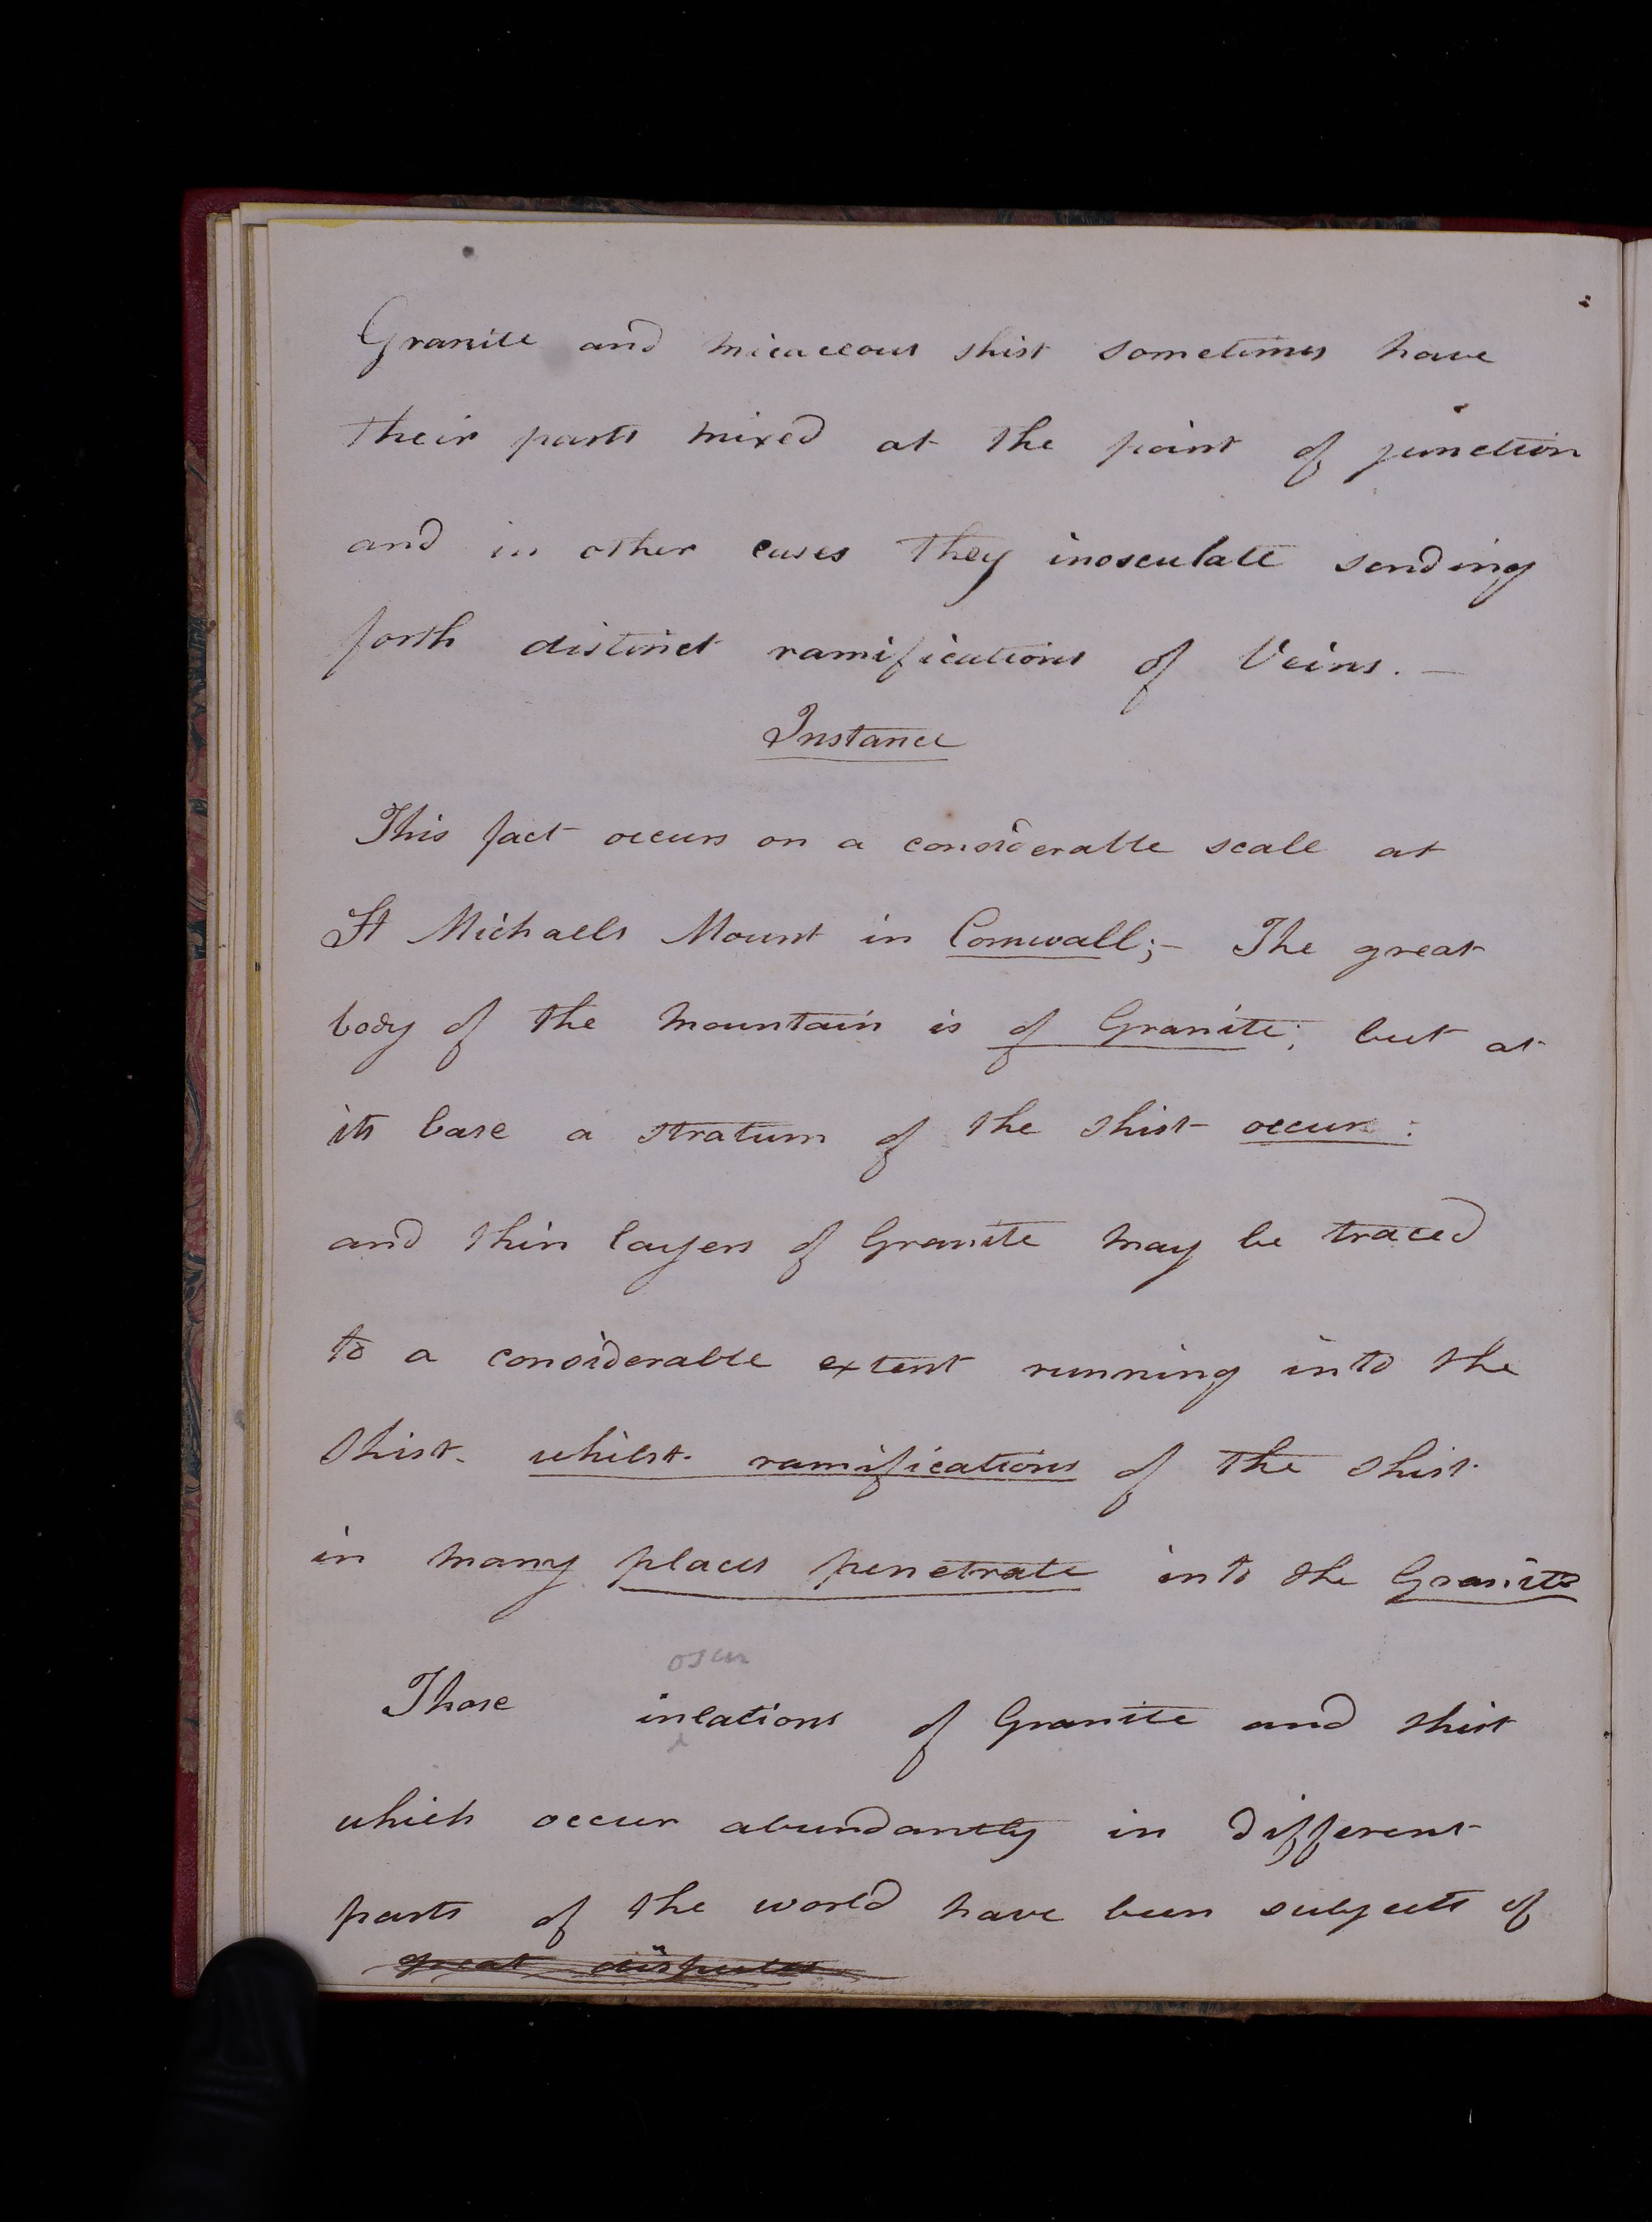 Granite and micaceous shist sometimes have
their parts mixed at the point of junction
and in other cases they inosculate sending
forth distinct ramifications of Veins. —
Instance
This fact occurs on a considerable scale at
St Michaels Mount in Cornwall; – The great
body of the mountain is of Granite; but at
its base a stratum of the shist occur :
and thin layers of Granite may be traced
to a considerable extent running into the
Shist. whilst ramifications of the shist
in many places penetrate into the Granite
oscu
Those inlations of Granite and shist
which occur abundantly in different
parts of the world have been subjects of
great disputes